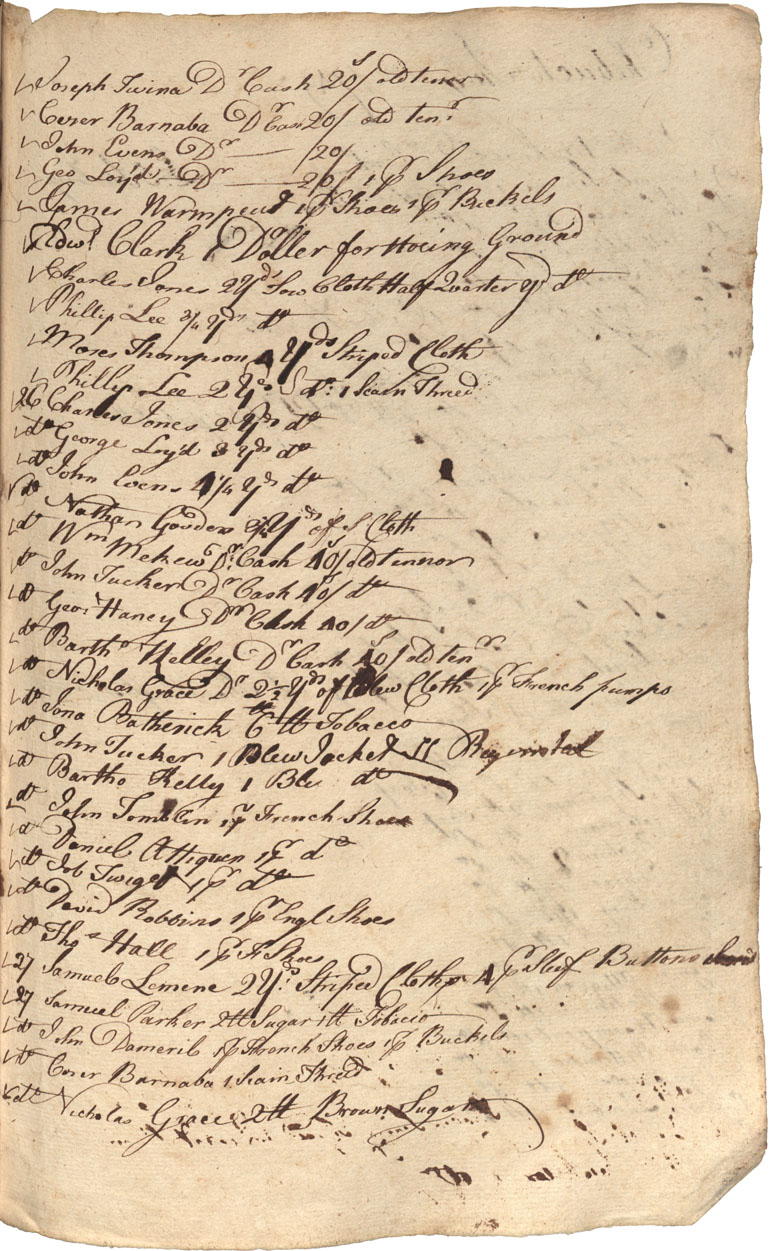 Joseph Twina Dr Cash 20s/ old tenor
Cezer Barnaba Dr Cash 20/ old tenr
John Evens Dr — 20/
Geo Loyd Dr — 20/ 1 pr Shoes
James Warmpeut 1 pr Shoes 1 pr Buckels
Edwd Clark 1 Doller for Hoing Ground
Charles Jones 2 Yds Tow Cloth Half Quarter yd do
Phillip Lee 3/4 Yds do
Moses Thompson 4 Yds Striped Cloth
Phillip Lee 2 Yds S do: 1 Scain Thred
26 Charles Jones 2 Yds do
do George Loyd 3 Yds do
do John Evens 4 1/4 Yds do
do Nathan Yds of S Cloth
do Wm Mekew Dr Cash 40s/ old tennor
do John Tucker Dr Cash 40s/ do
do Geo: Haney Dr Cash 40/ do
do Bartho Kelley Dr Cash 40s/ old tenr
do Nicholas Grace Dr 2 1/2 Yds of Blew Cloth 1 pr French pumps
do Jona Batherick 6 lb Tobacco
do John Tucker 1 Blew Jacket
do Bartho Kelly 1 Blu do
do John Tomblin 1 pr French Shoes
do Daniel Attiquen 1 pr do
do Job Twiget 1 pr do
do David Robbins 1 pr Engl Shoes
do Thos Hall 1 pr F Shoes
27 Samuel Lemene 2 Yds Striped Cloth 4 pr Sleef Buttons
27 Samuel Parker 2 lb Sugar 1 lb Tobacio
do John Dameril 1 pr French Shoes 1 pr Buckels
do Cezer Barnaba 1 Scain Thred
do Nicholas Grace 2 lb Brown Sugar